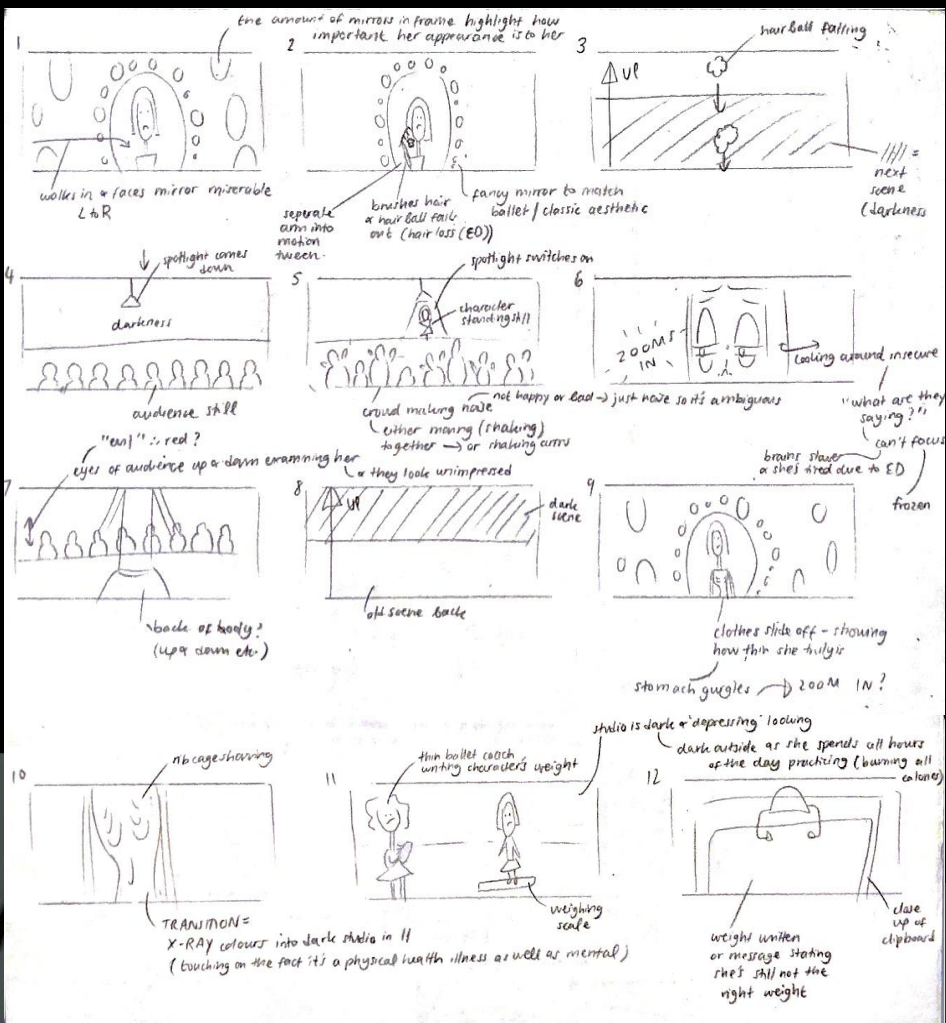 the amount of mirrors in frame highlight how
important her appearance is to her
1
walks in & faces mirror miserable
L to R
2
seperate
arm into
motion
tween.
brushes hair
& hair ball falls
out (hair loss (ED))
fancy mirror to match
ballet / classic aesthetic
3
hair ball falling
UP
//// =
next
scene
(darkness
4
spotlight comes
down
darkness
audience still
5
spotlight switches on
character
standing still
crowd making noise
not happy or bad → just noise so it's ambiguous
either moving (shaking)
together → or shaking arms
6
ZOOMS
IN
looking around insecure
"what are they
saying?"
can't focus
brains slower
& she's tired due to ED
frozen
7
"evil" ∴ red?
eyes of audience up & down examining her
& they look unimpressed
'back of body?
(up & down etc.)
8
UP
dark
scene
old scene back
9
clothes slide off - showing
how thin she truly is
stomach gurgles → ZOOM IN?
10
ribcage showing
TRANSITION =
X-RAY colours into dark studio in 11
(touching on the fact it's a physical health illness as well as mental)
11
thin ballet coach
writing character's weight
studio is dark & 'depressing' looking
dark outside as she spends all hours
of the day practicing (burning all
calories)
weighing
scale
12
weight written
or message stating
she's still not the
right weight
close
up of
clipboard